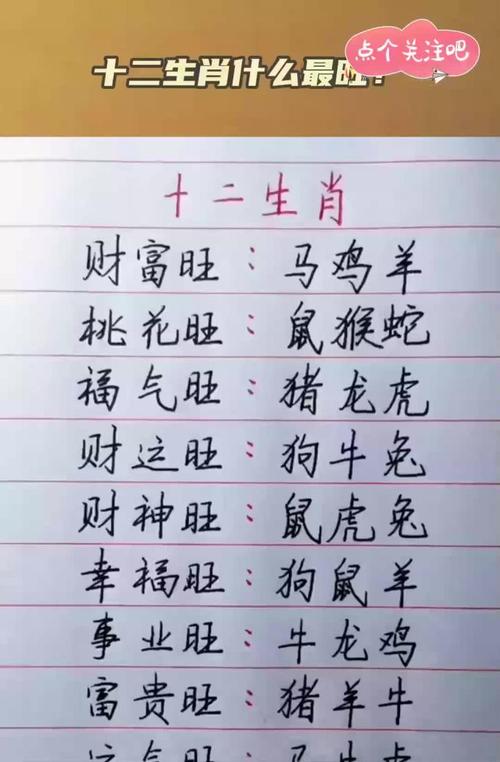 十二生肖什么最旺?
点个关注吧
十二生肖
财富旺：马鸡羊
桃花旺：鼠猴蛇
福气旺：猪龙虎
财运旺：狗牛兔
财神旺：鼠虎兔
幸福旺：狗鼠羊
事业旺：牛龙鸡
富贵旺：猪羊牛